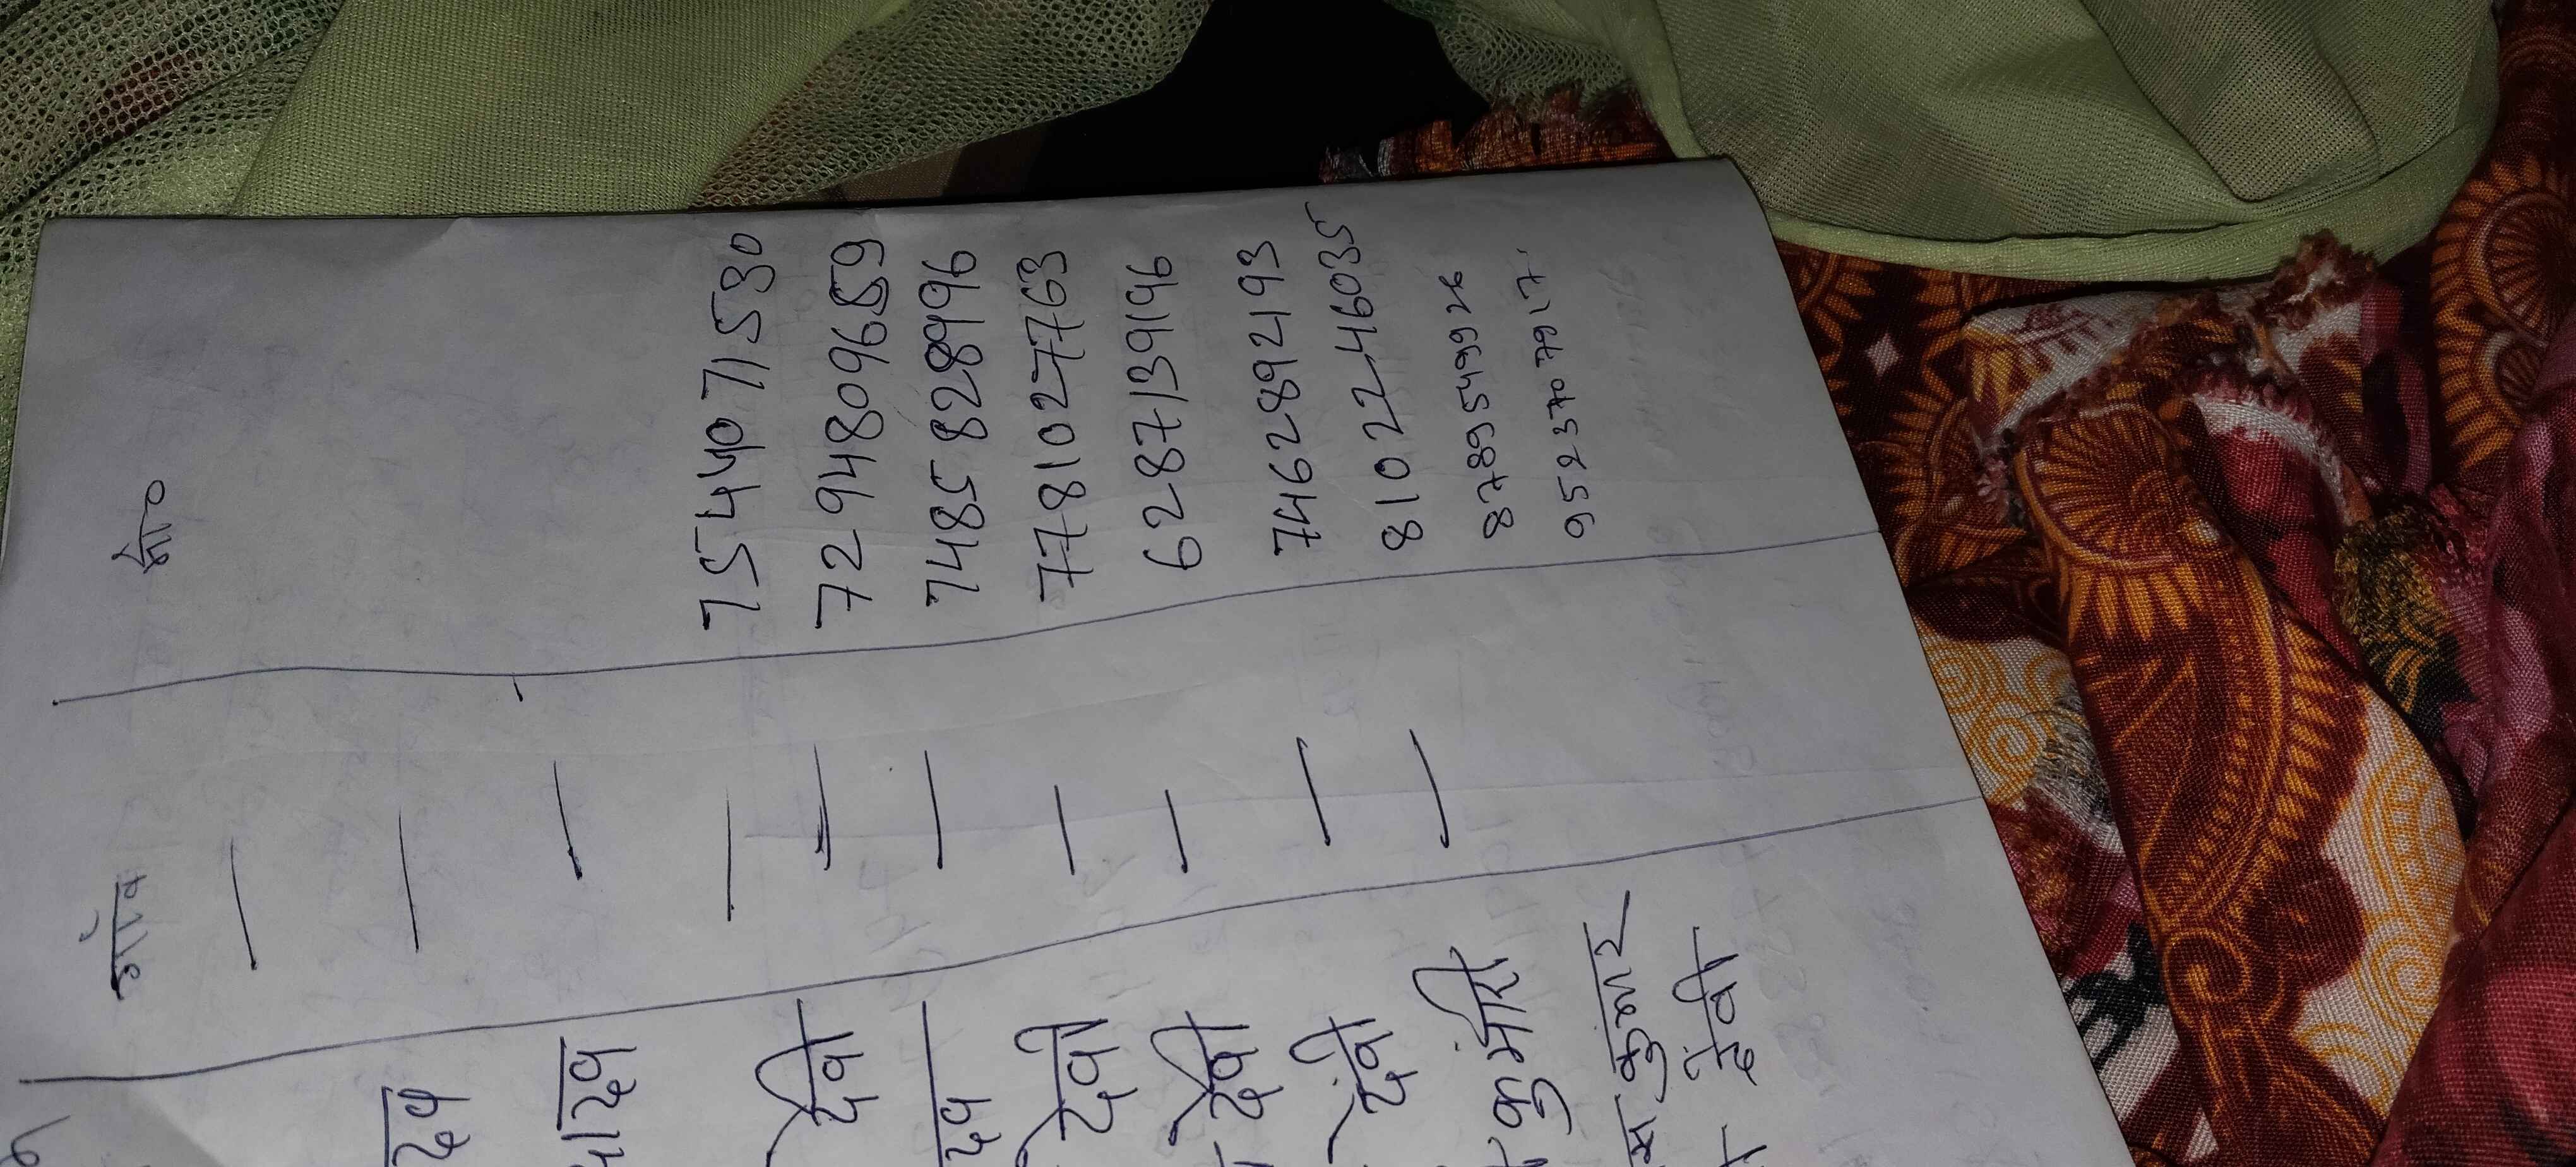 गाँव मो०
देव
यादव
देवी 7544071530
देव 7294809659
देवी 7485828996
देवी 7781027763
देवी 6287139196
कुमारी 7462892193
कुमार 8102246035
देवी 8789549926
9523707917